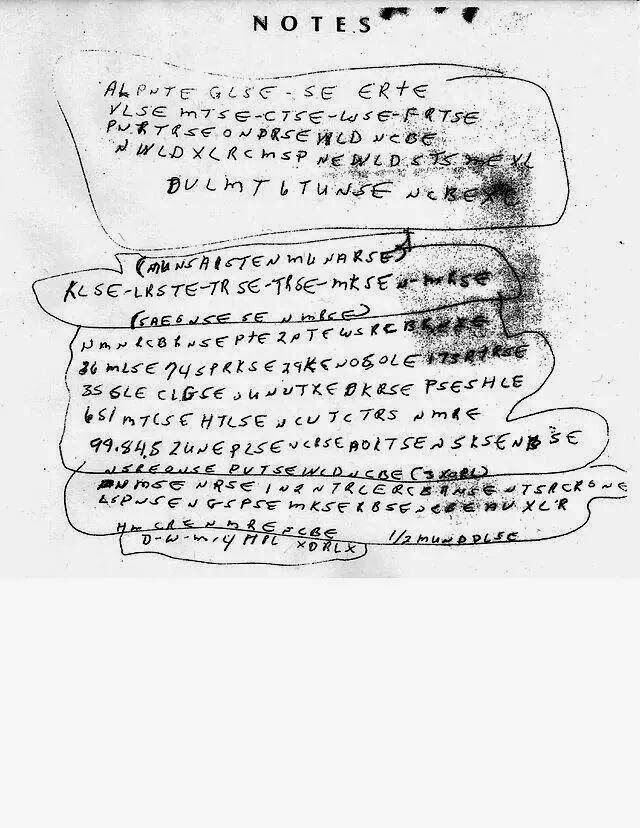 NOTES
ALPNTE GLSE-SE ERTE
VLSE MTSE-CTSE-WSE-FRTSE
PNRTRSE ONDRSEWLD NCBE
NWLDXLRCMSP NEWLDSTSMEXL
DULMT6TUNSE NCBEXC
(MUNSAISTENMUNARSE)
KLSE-LRSTE-TRSE-TRSE-MKSEN-MRSE
(SAEGNSESE NMRSE)
NMNRCBRNSEPTE2PTEWSRCBRNSE
36MLSE74SPRKSE29KENOSOLE173RTRSE
35GLE CLGSE UNUTXE DKRSE PSESHLE
651MTCSE HTLSE NCUTCTRS NMRE
99.84.52UNEPLSENCRSEAOLTSENSKSENBSE
NSREONSE PUTSEWLDNCBE(3XORL)
NMSE NRSE IN2NTRLERCBRNSE NTSRCRONE
LSPNSENGSPSE MKSERBSENCBEAUXL'R
HMCRENMREKCBE
D-W-M-4 MPL XDRLX
1/2MUNDDLSE